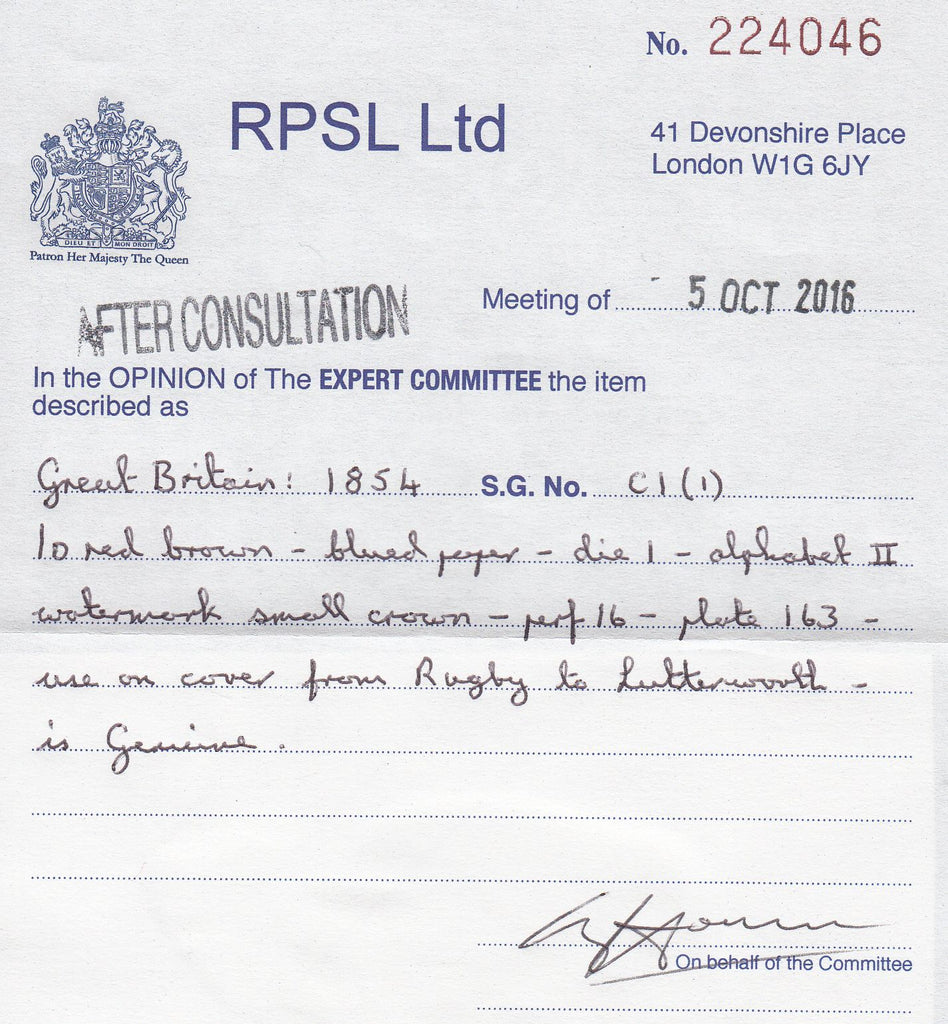 No. 224046
RPSL Ltd
41 Devonshire Place
London W1G 6JY
DIEU ET MON DROIT
Patron Her Majesty The Queen
AFTER CONSULTATION
Meeting of 5 OCT 2016
In the OPINION of The EXPERT COMMITTEE the item
described as
Great Britain: 1854 S.G. No. C1(1)
1D red brown - blued paper - die 1 - alphabet II
watermark small crown - perf 16 - plate 163 -
use on cover from Rugby to Lutterworth -
is Genuine.
On behalf of the Committee